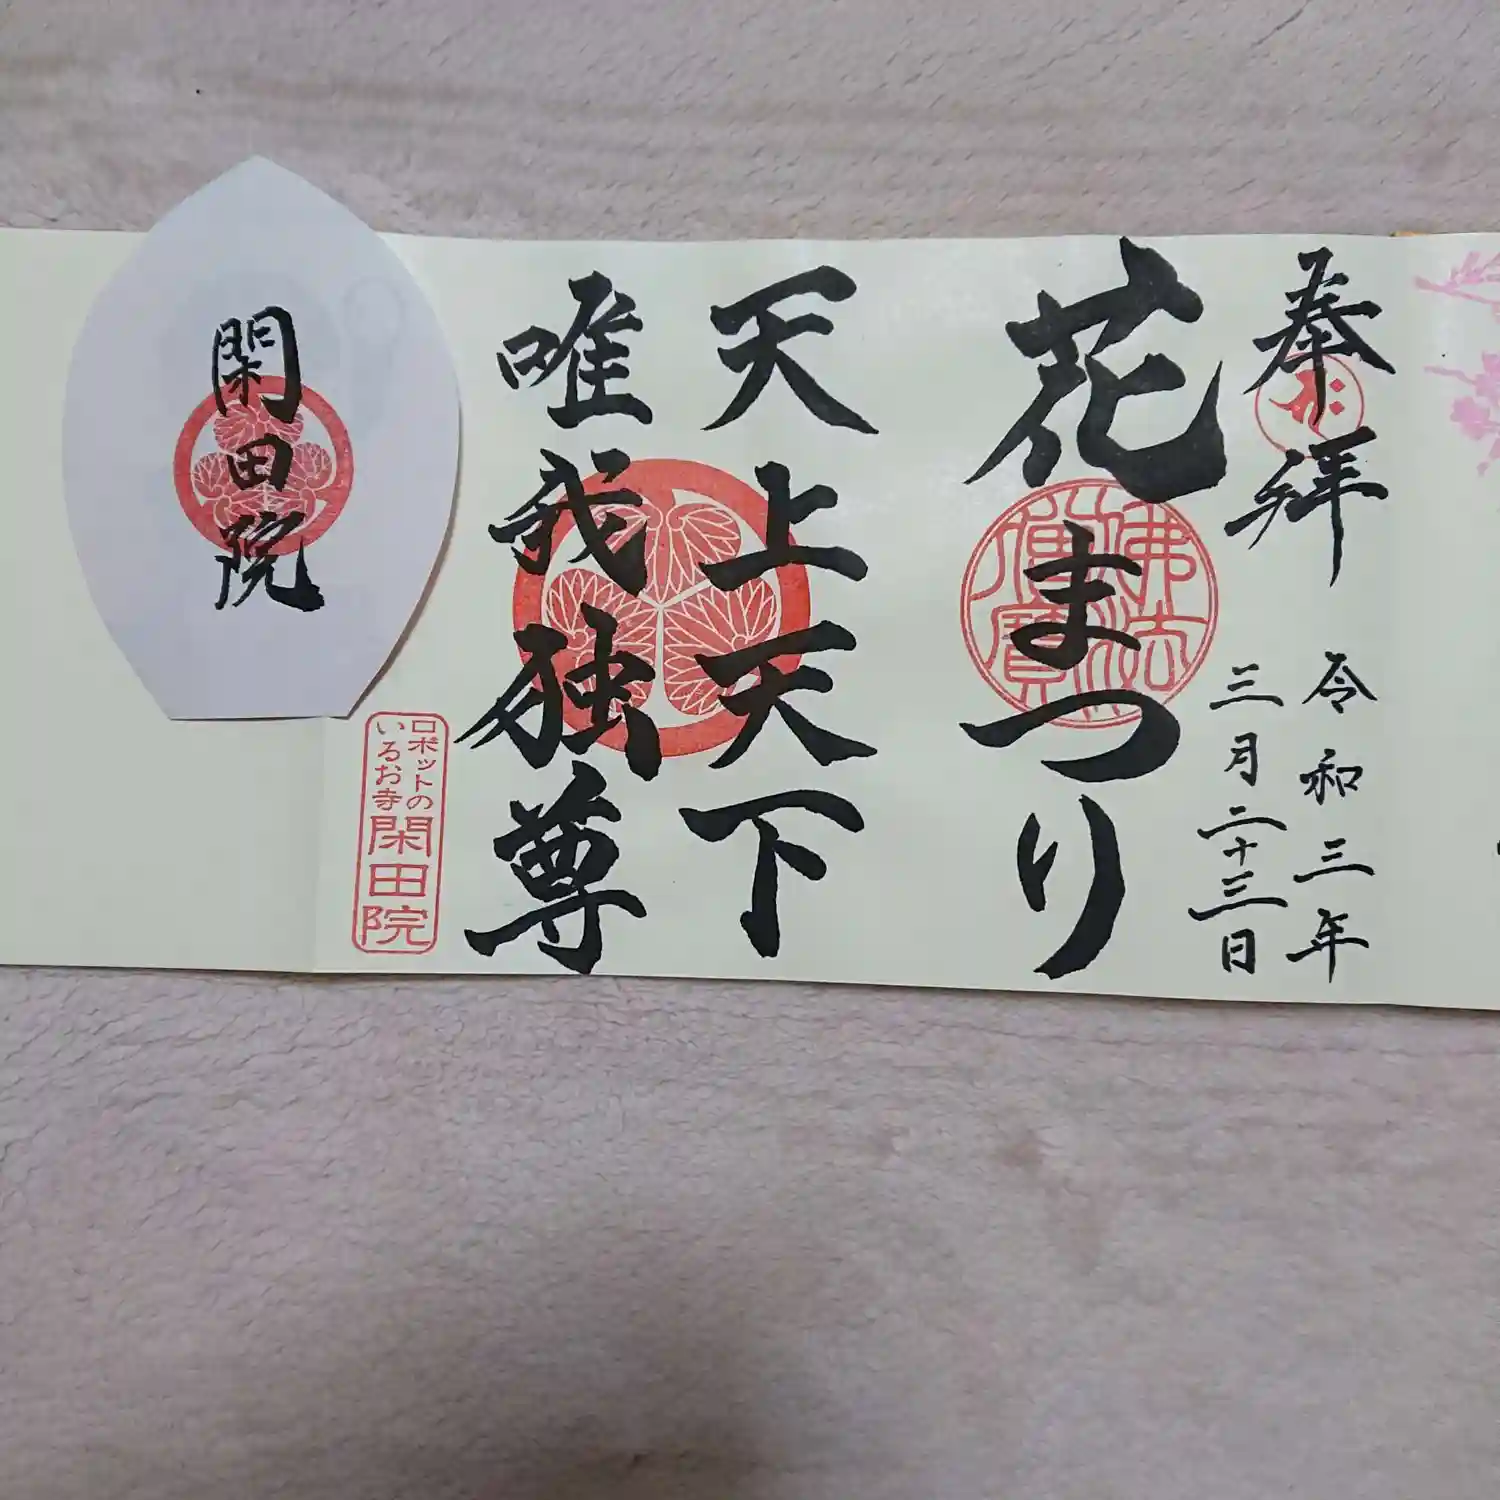 奉拝
令和三年
三月二十三日
花まつり
佛法僧寶
天上天下
唯我独尊
ロボットの
いるお寺
閑田院
閑田院